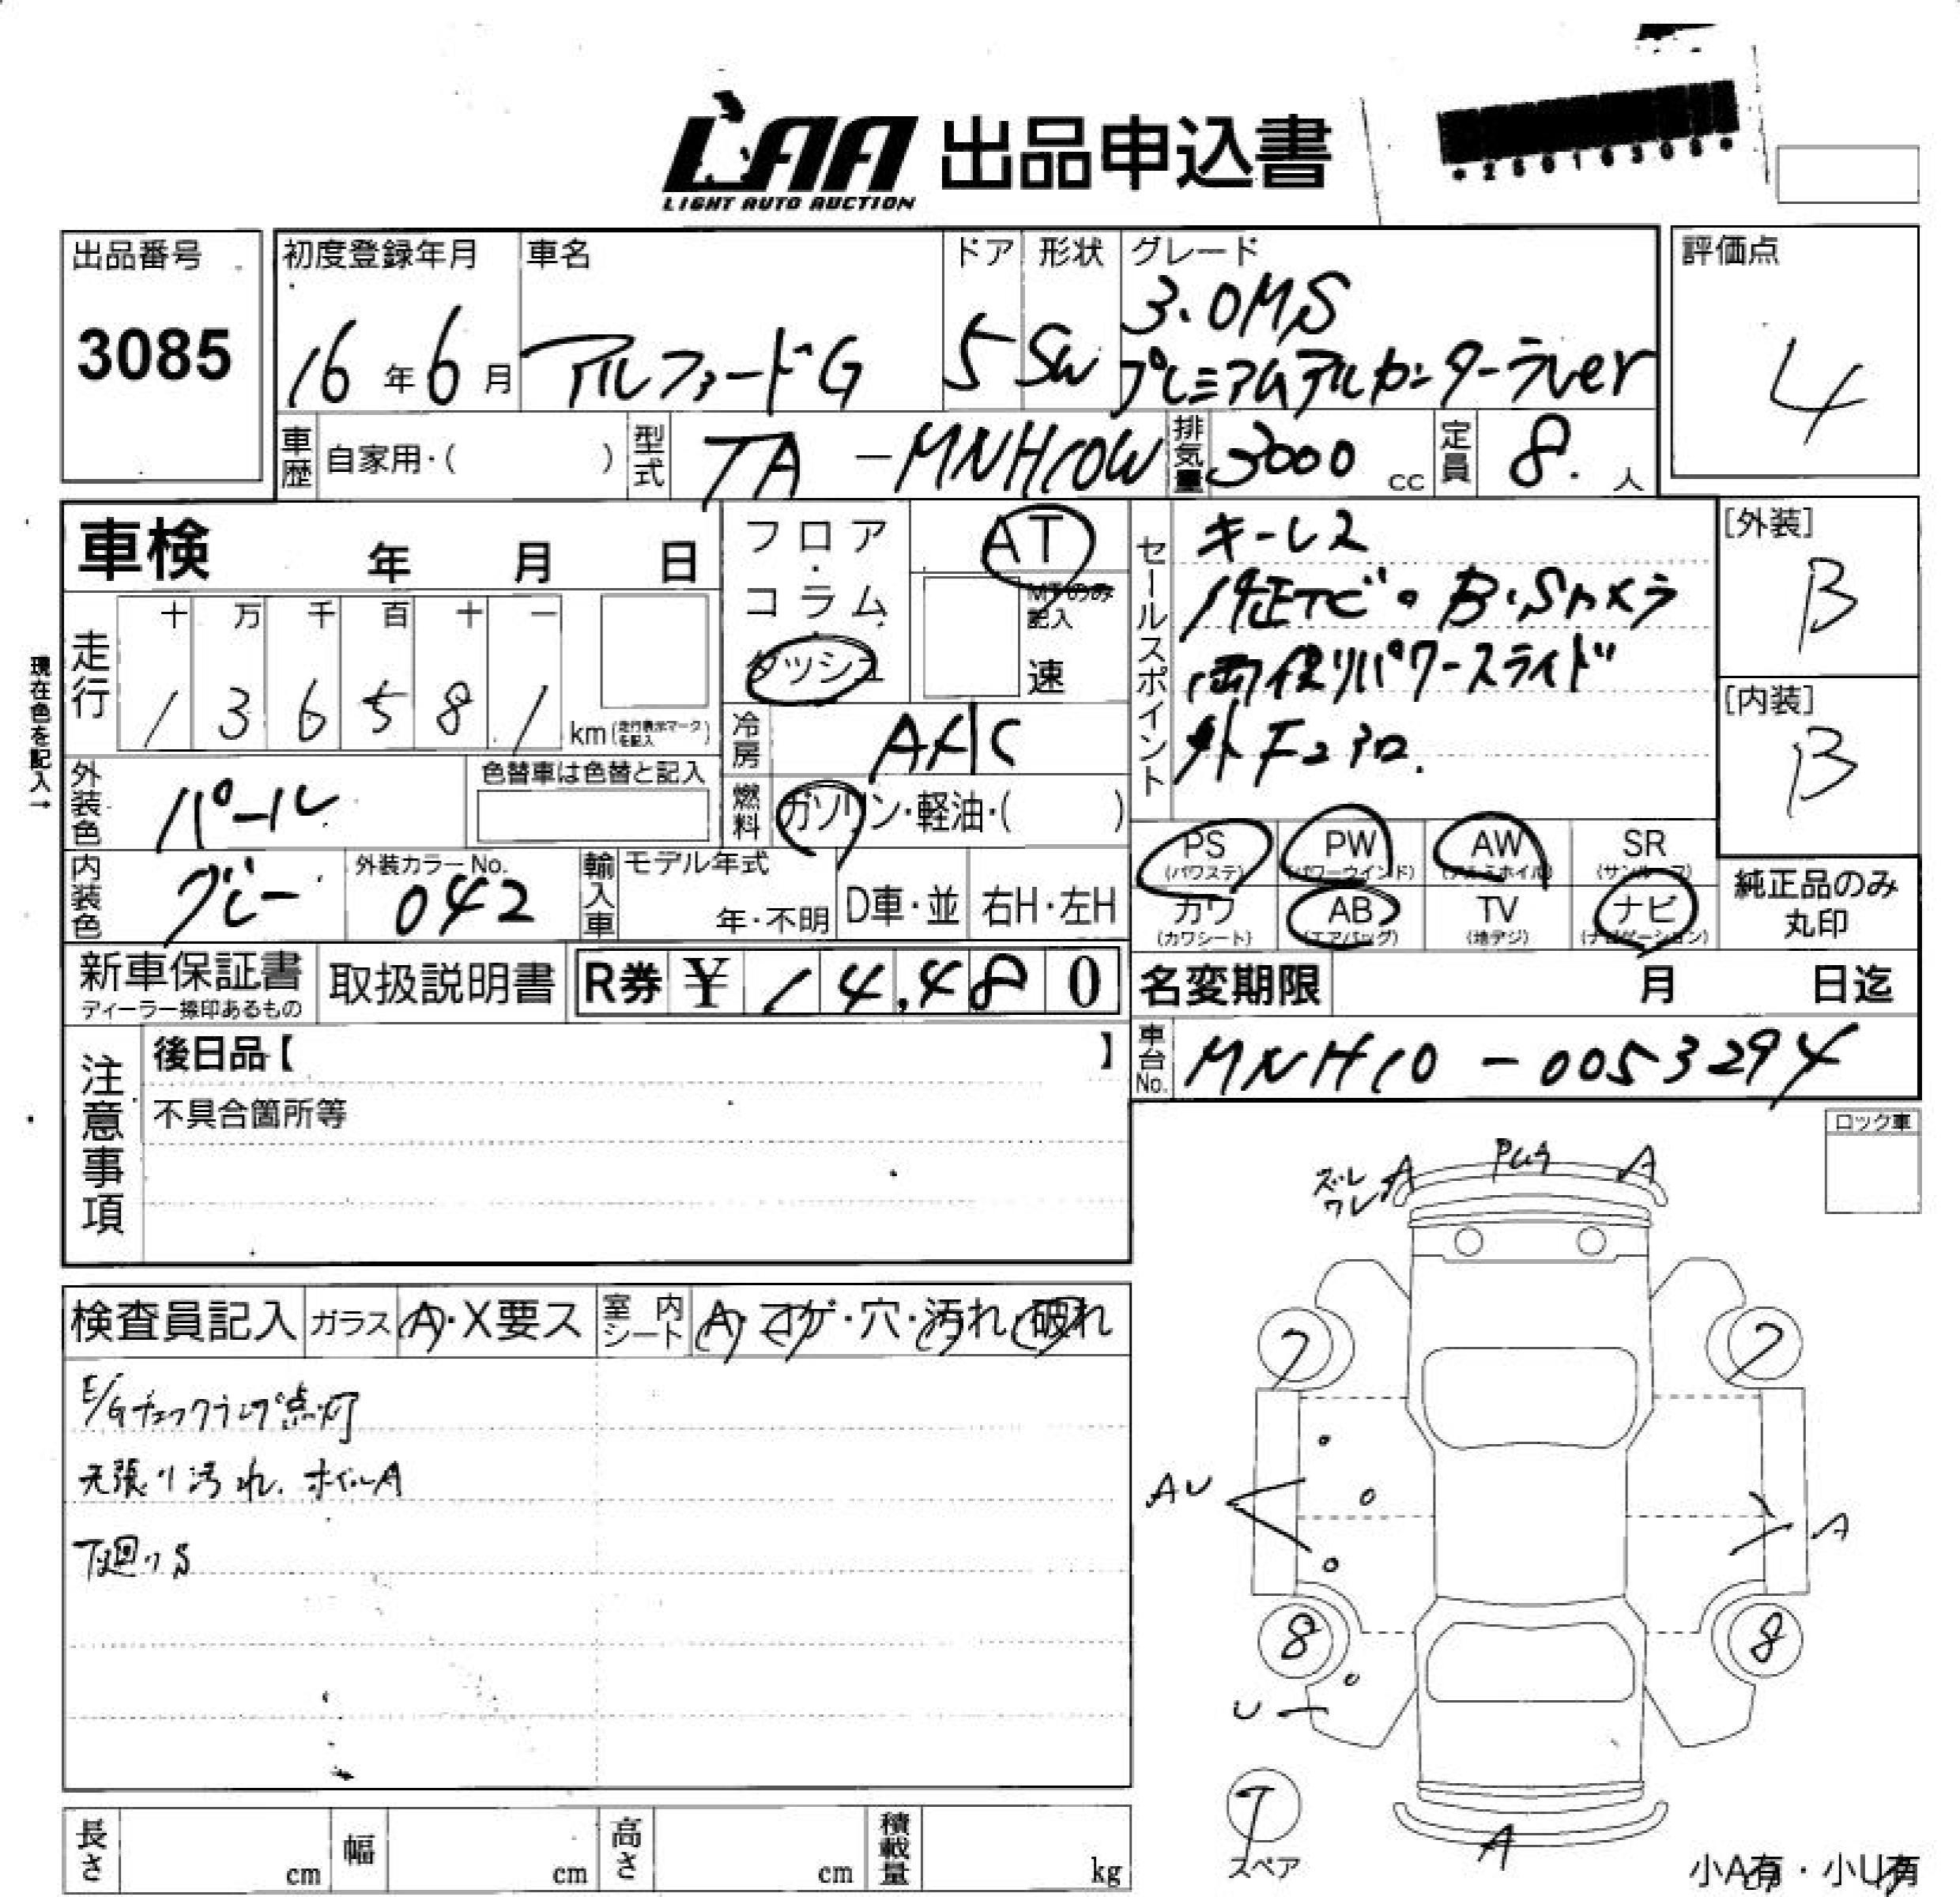 LAA 出品申込書
LIGHT AUTO AUCTION
出品番号
3085
初度登録年月
16年6月
車名
アルファードG
ドア
5
形状
SW
グレード
3.0MS
プレミアムアルカンターラver
評価点
4
車歴 自家用・( )
型式 TA-MNH10W
排気量 3000 cc
定員 8. 人
車検 年 月 日
現在色を記入→
走行
十 万 千 百 十 一
1 3 6 5 8 1 km (走行表示マークを記入)
フロア・コラム・ダッシュ
AT
MTのみ記入
速
冷房 AAC
燃料 ガソリン・軽油・( )
外装色 パール
色替車は色替と記入
内装色 グレー
外装カラーNo.
042
輸入車
モデル年式
年・不明
D車・並
右H・左H
セールスポイント
キーレス
純正ナビ・B・Sカメラ
両側パワースライド
外
PS (パワステ)
PW (パワーウインド)
AW (アルミホイル)
SR (サンルーフ)
カワ (カワシート)
AB (エアバッグ)
TV (地デジ)
ナビ (ナビゲーション)
[外装]
B
[内装]
B
純正品のみ
丸印
新車保証書
ディーラー捺印あるもの
取扱説明書
R券 ¥ 14,480
名変期限 月 日迄
車台No. MNH10-0053294
注意事項
後日品【 】
不具合箇所等
ロック車
検査員記入
ガラス A・X要ス
室内シート A・コゲ・穴・汚れ・破れ
E/Gチェックランプ点灯
天張り汚れ. ホイルA
下廻りS
ズレ
ワレ
A
A
7
7
AU
A
8
8
U
スペア
A
長さ cm
幅 cm
高さ cm
積載量 kg
小A有・小U有